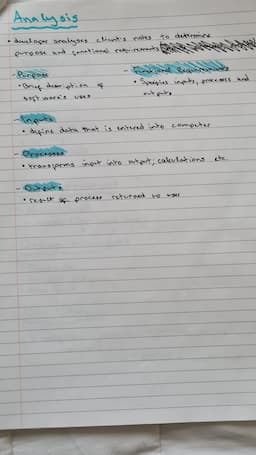 Analysis
• developer analyses client's notes to determine
purpose and functional requirements
- Purpose
• Brief description of
software's uses
- Functional Requirements
• Specifies inputs, processes and
outputs
- Inputs
• define data that is entered into computer
- Processes
• transforms input into output, calculations etc.
- Outputs
• result of process returned to user